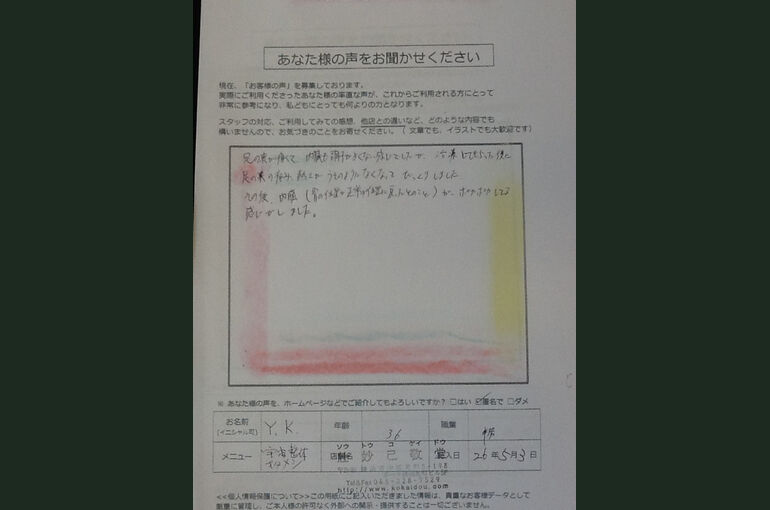 あなた様の声をお聞かせください
現在、「お客様の声」を募集しております。
実際にご利用くださったあなた様の率直な声が、これからご利用される方にとって
非常に参考になり、私どもにとっても何よりの力となります。
スタッフの対応、ご利用してみての感想、他店との違いなど、どのような内容でも
構いませんので、お気づきのことをお寄せください。（ 文章でも、イラストでも大歓迎です）
足の裏が痛くて、内臓も調子がよくない感じでしたが、
足の裏の痛み うそのようになくなって
その後、内臓（胃の位置が正常な位置に戻ったとのこと）が、ポカポカしてる
感じがしました。
※ あなた様の声を、ホームページなどでご紹介してもよろしいですか？ □はい ☑匿名で □ダメ
お名前 Y.K. 年齢 36 職業
(イニシャル可)
ソウ トウ コ ケイ ドウ
メニュー 宇宙整体 店舗名 妙 己 敬 堂 記入日 26年5月3日
http://www.kokaidou.com
<<個人情報保護について>>この用紙にご記入いただきました情報は、貴重なお客様データとして
厳重に管理し、ご本人様の許可なく外部への開示・提供することは一切ございません。